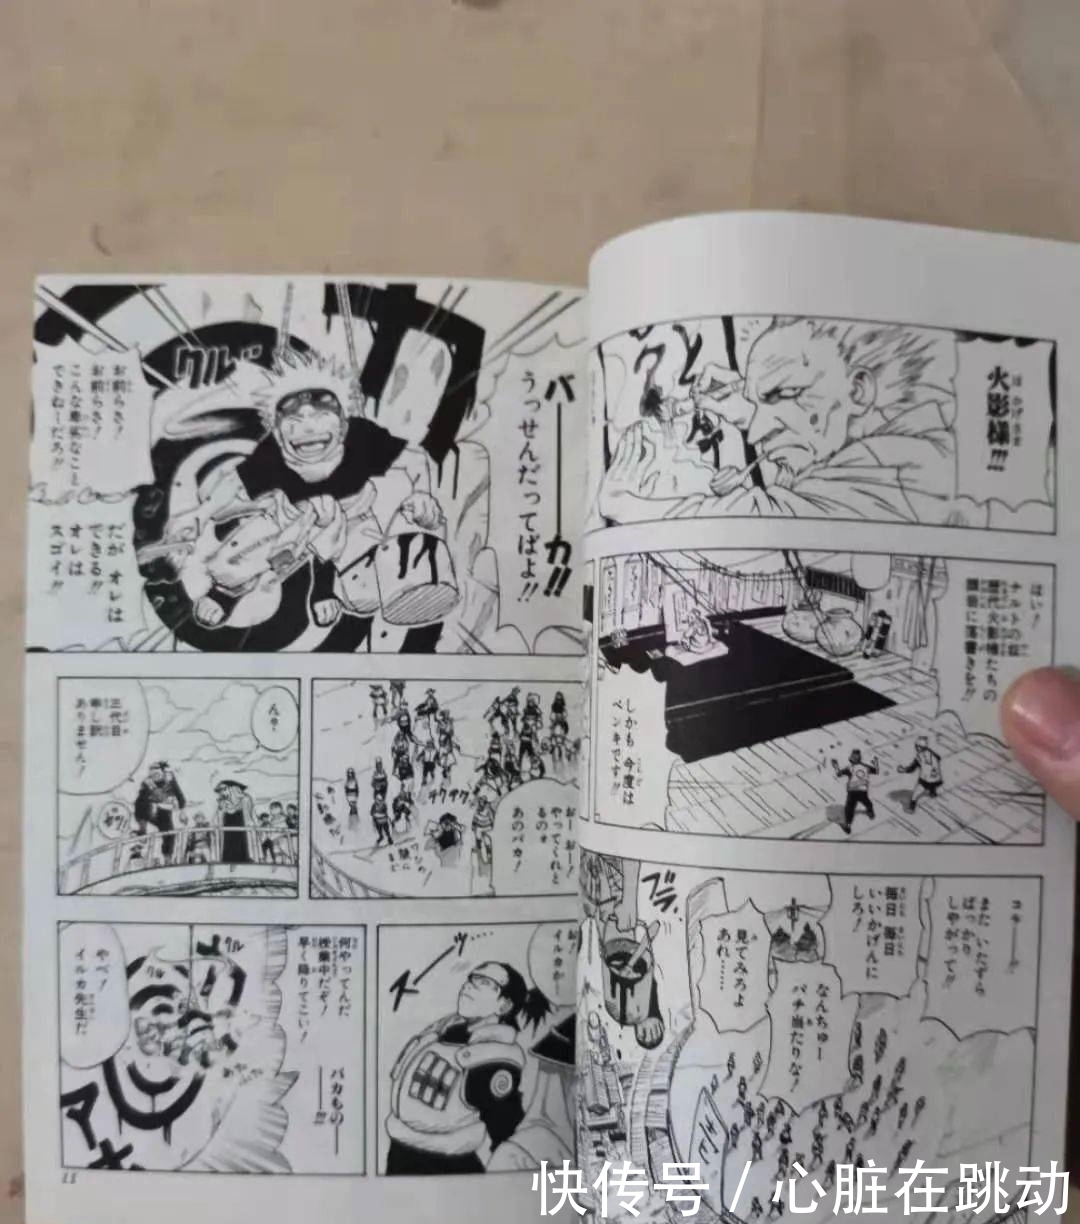 火影様!!!
ほかげさま
はい!
ナルトの奴
歴代火影様たちの
顔岩に落書きを!!
しかも 今度は
ペンキです!!
コラー
また いたずら
ばっかり
しやがって!!
毎日 毎日
いいかげんに
しろ!
なんちゅー
バチ当たりな!
見てみろよ
あれ……
ブラ
バーーカ!!
うっせんだってばよ!!
クルッ
お前らさ!
お前らさ!
こんな卑劣なこと
できねーだろ!!
だが オレは
できる!!
オレは
スゴイ!!
おー おー!
やってくれと
るのォ
あのバカ!
ん?
三代目
申し訳
ありません!
お!
イルカか
何やってんだ
授業中だぞ!
早く降りてこい!
バカものーー!!!
やべ!
イルカ先生だ
11
快传号 / 心脏在跳动